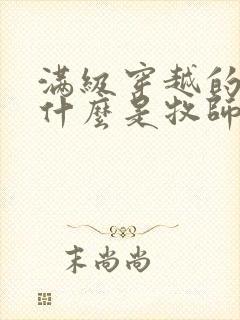 滿級穿越的
什麼是牧師
末尚尚